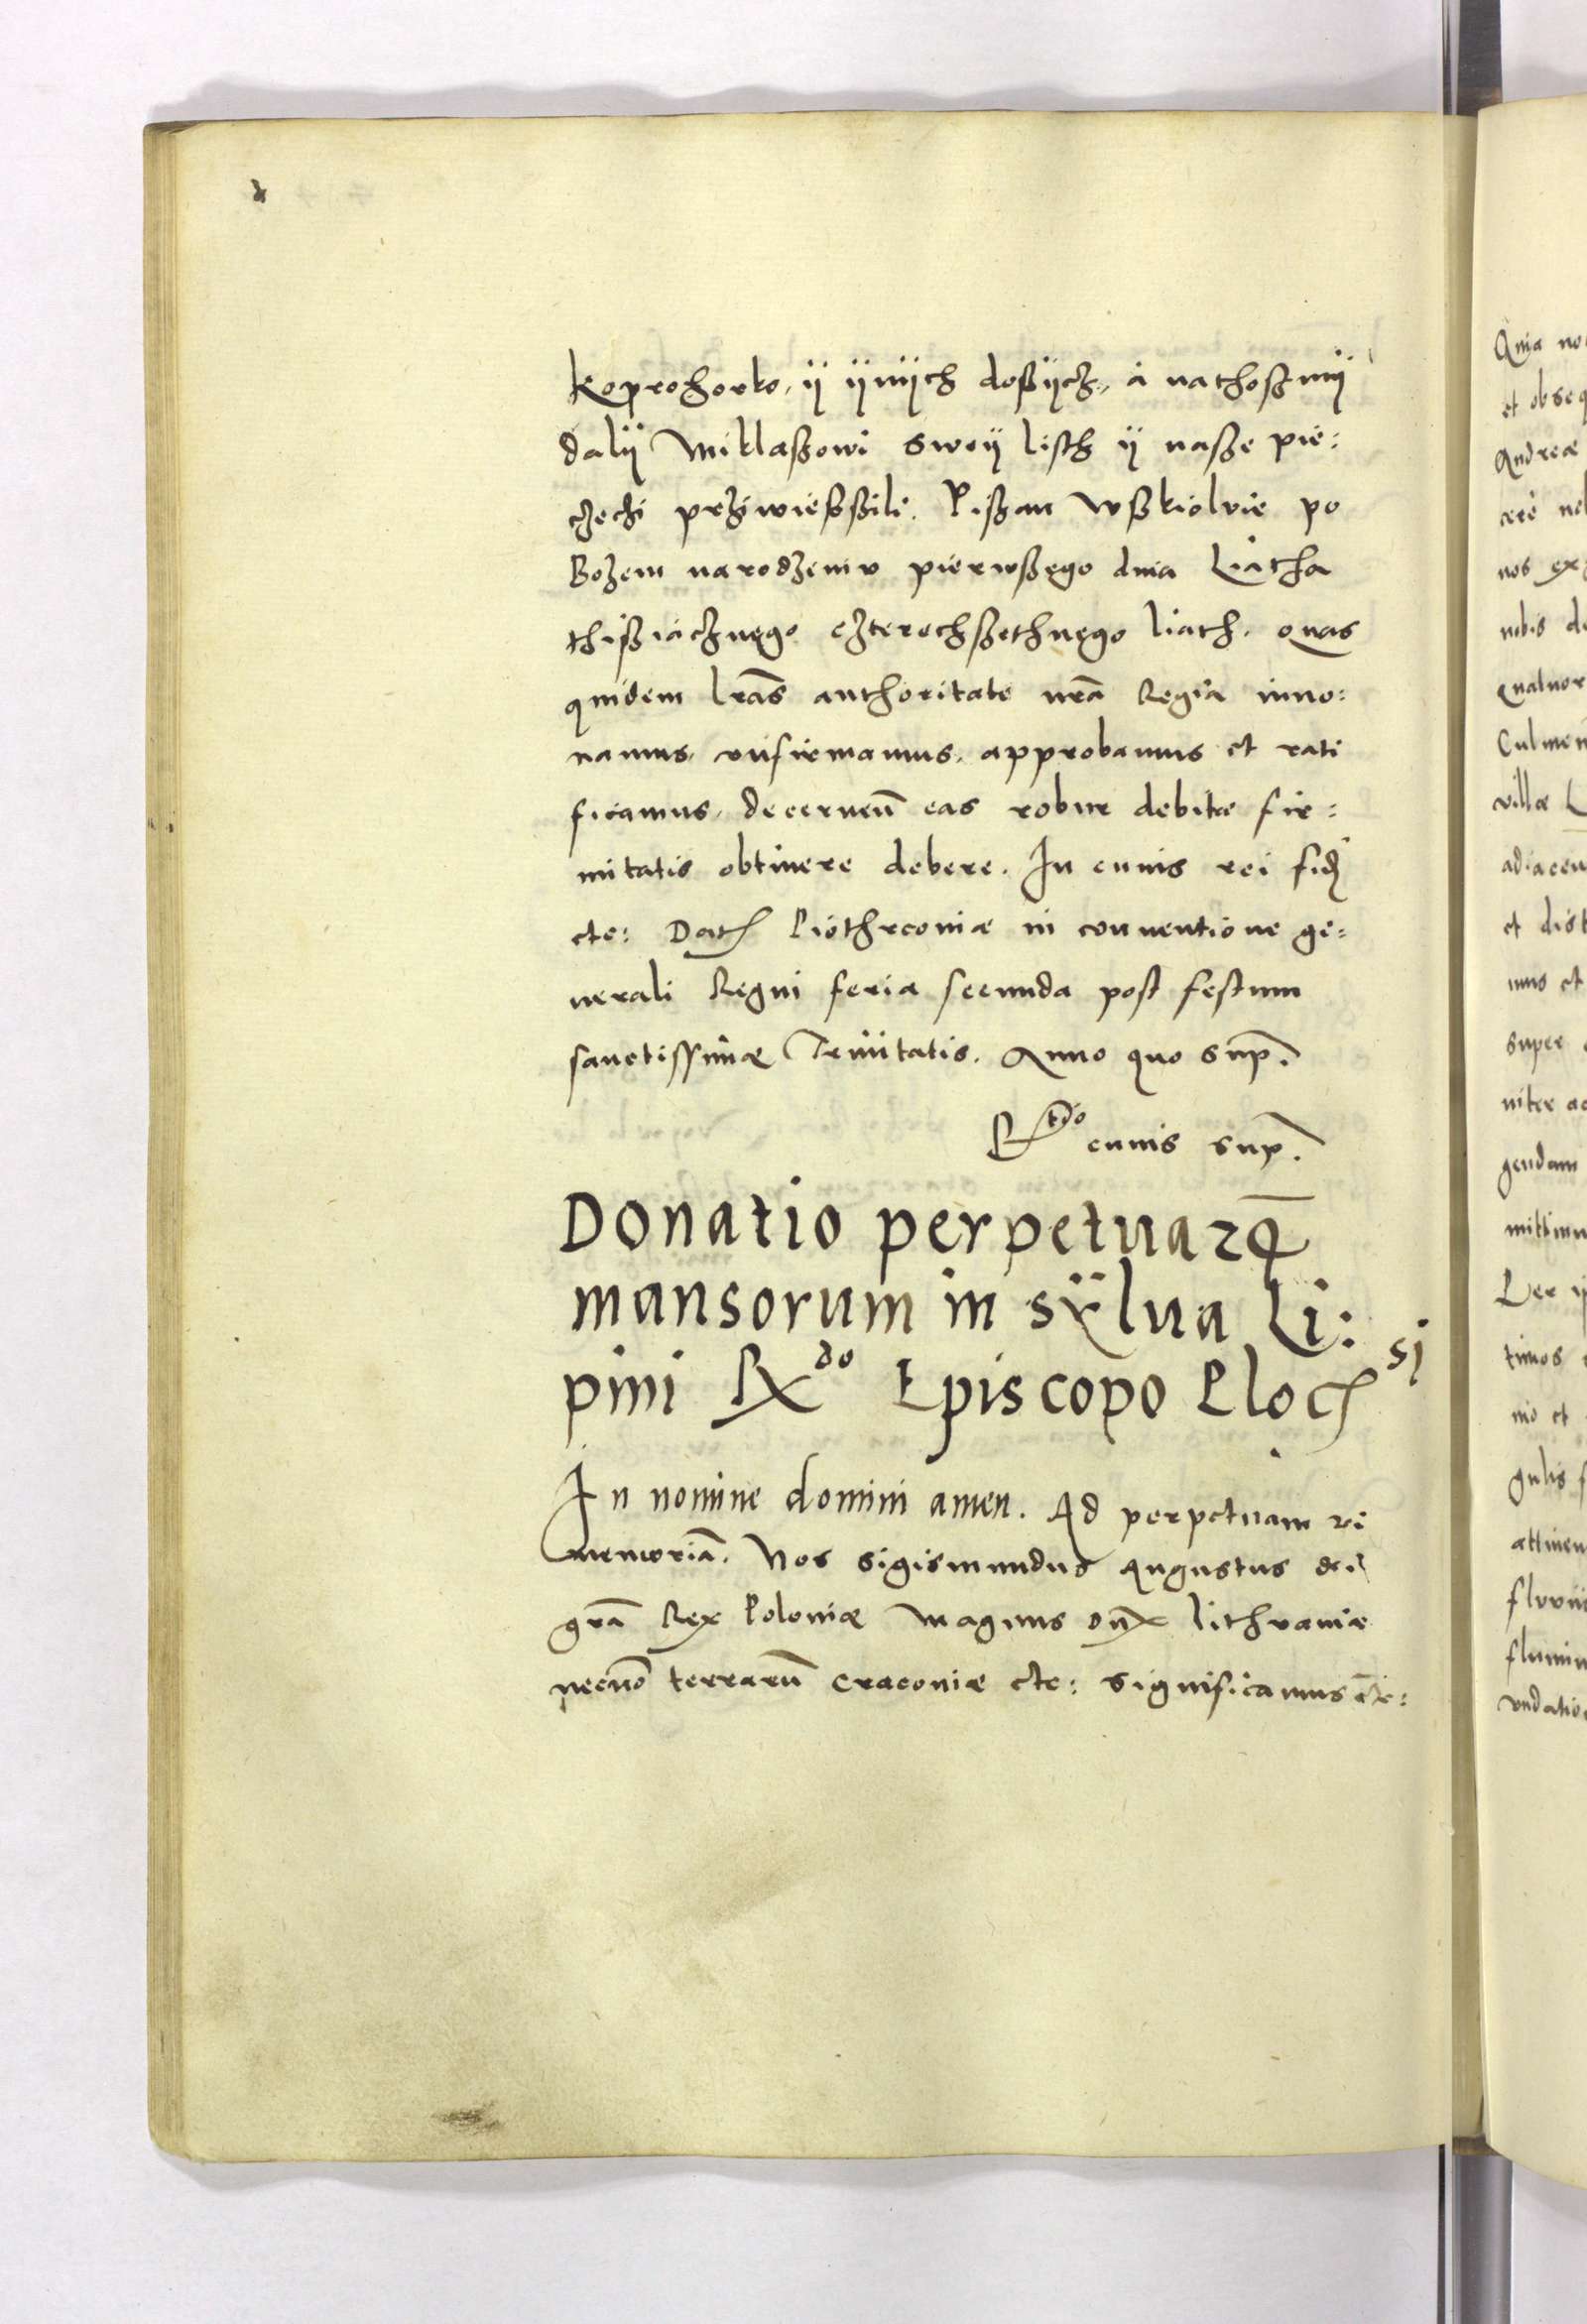 Koprohorko, ÿ ÿnÿch dosÿcz, a nathoszmÿ
dalÿ Miklaszowi swoÿ listh ÿ nasze pie:
czechi prziwießßili. Piszan Wszkiolvie po
Bozem narodzeniv pierwszego dnia Liatha
thisziącznego czterechszethnego liath. Quas
quidem lras authoritate nra Regia inno:
uamus, cōfirmamus, approbamus et rati
ficamus, decernen̄ eas robur debitæ fir:
mitatis obtinere debere. In cuius rei fid
etc: Dat Piothrconiæ in conuentione ge:
nerali Regni feria secunda post festum
sanctissimæ Trinitatis. Anno quo sup.
Rtio cuius sup.
Donatio perpetua 2Q
mansorum in sÿlua Li:
pini Rdo Episcopo Ploc si
In nomine domini amen. Ad perpetuam rei
memoriā. Nos Sigismundus Augustus dei
grā Rex Poloniæ Magnus Dux Lithvaniæ
necnō terrarū Craconiæ etc: Significamus etc:
Quia no
et obseq
Andreæ
nos ex
nobis de
quatuor
Culmen
villæ L
adiacen
et dist
super
niter ac
gendam
mittimu
Per ip
timos
nio et
gulis s
attinen
fluvii
flumin
vndatio